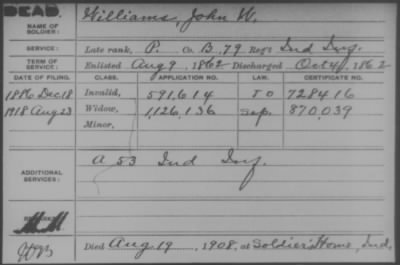 DEAD.
NAME OF SOLDIER: Williams, John W.
SERVICE: Late rank, P. Co. B, 79 Reg't Ind Inf.
TERM OF SERVICE: Enlisted Aug 9, 1862 Discharged Oct 4, 1862
DATE OF FILING. CLASS. APPLICATION NO. LAW. CERTIFICATE NO.
1886 Dec 18 Invalid, 591,614 728416
1918 Aug 23 Widow, 1,126,136 Sep. 870,039
Minor,
ADDITIONAL SERVICES: A 53 Ind Inf.
Died Aug 19 1908, at Soldier's Home, Ind.